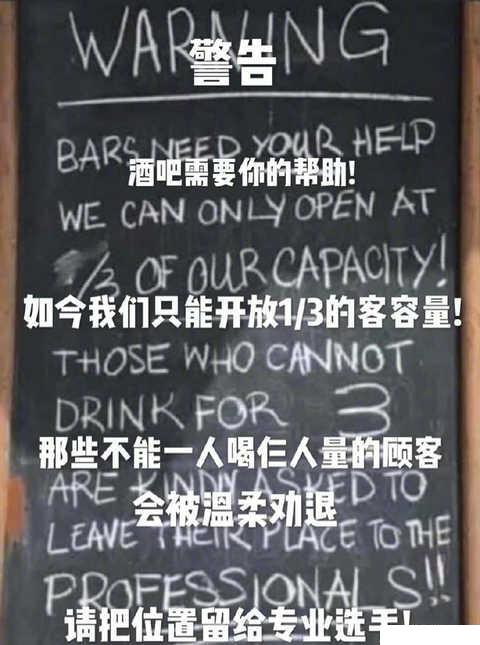 WARNING
警告
BARS NEED YOUR HELP
酒吧需要你的帮助!
WE CAN ONLY OPEN AT
1/3 OF OUR CAPACITY!
如今我们只能开放1/3的客容量!
THOSE WHO CANNOT
DRINK FOR 3
那些不能一人喝仨人量的顾客
ARE KINDLY ASKED TO
会被温柔劝退
LEAVE THEIR PLACE TO THE
PROFESSIONALS!!
请把位置留给专业选手!